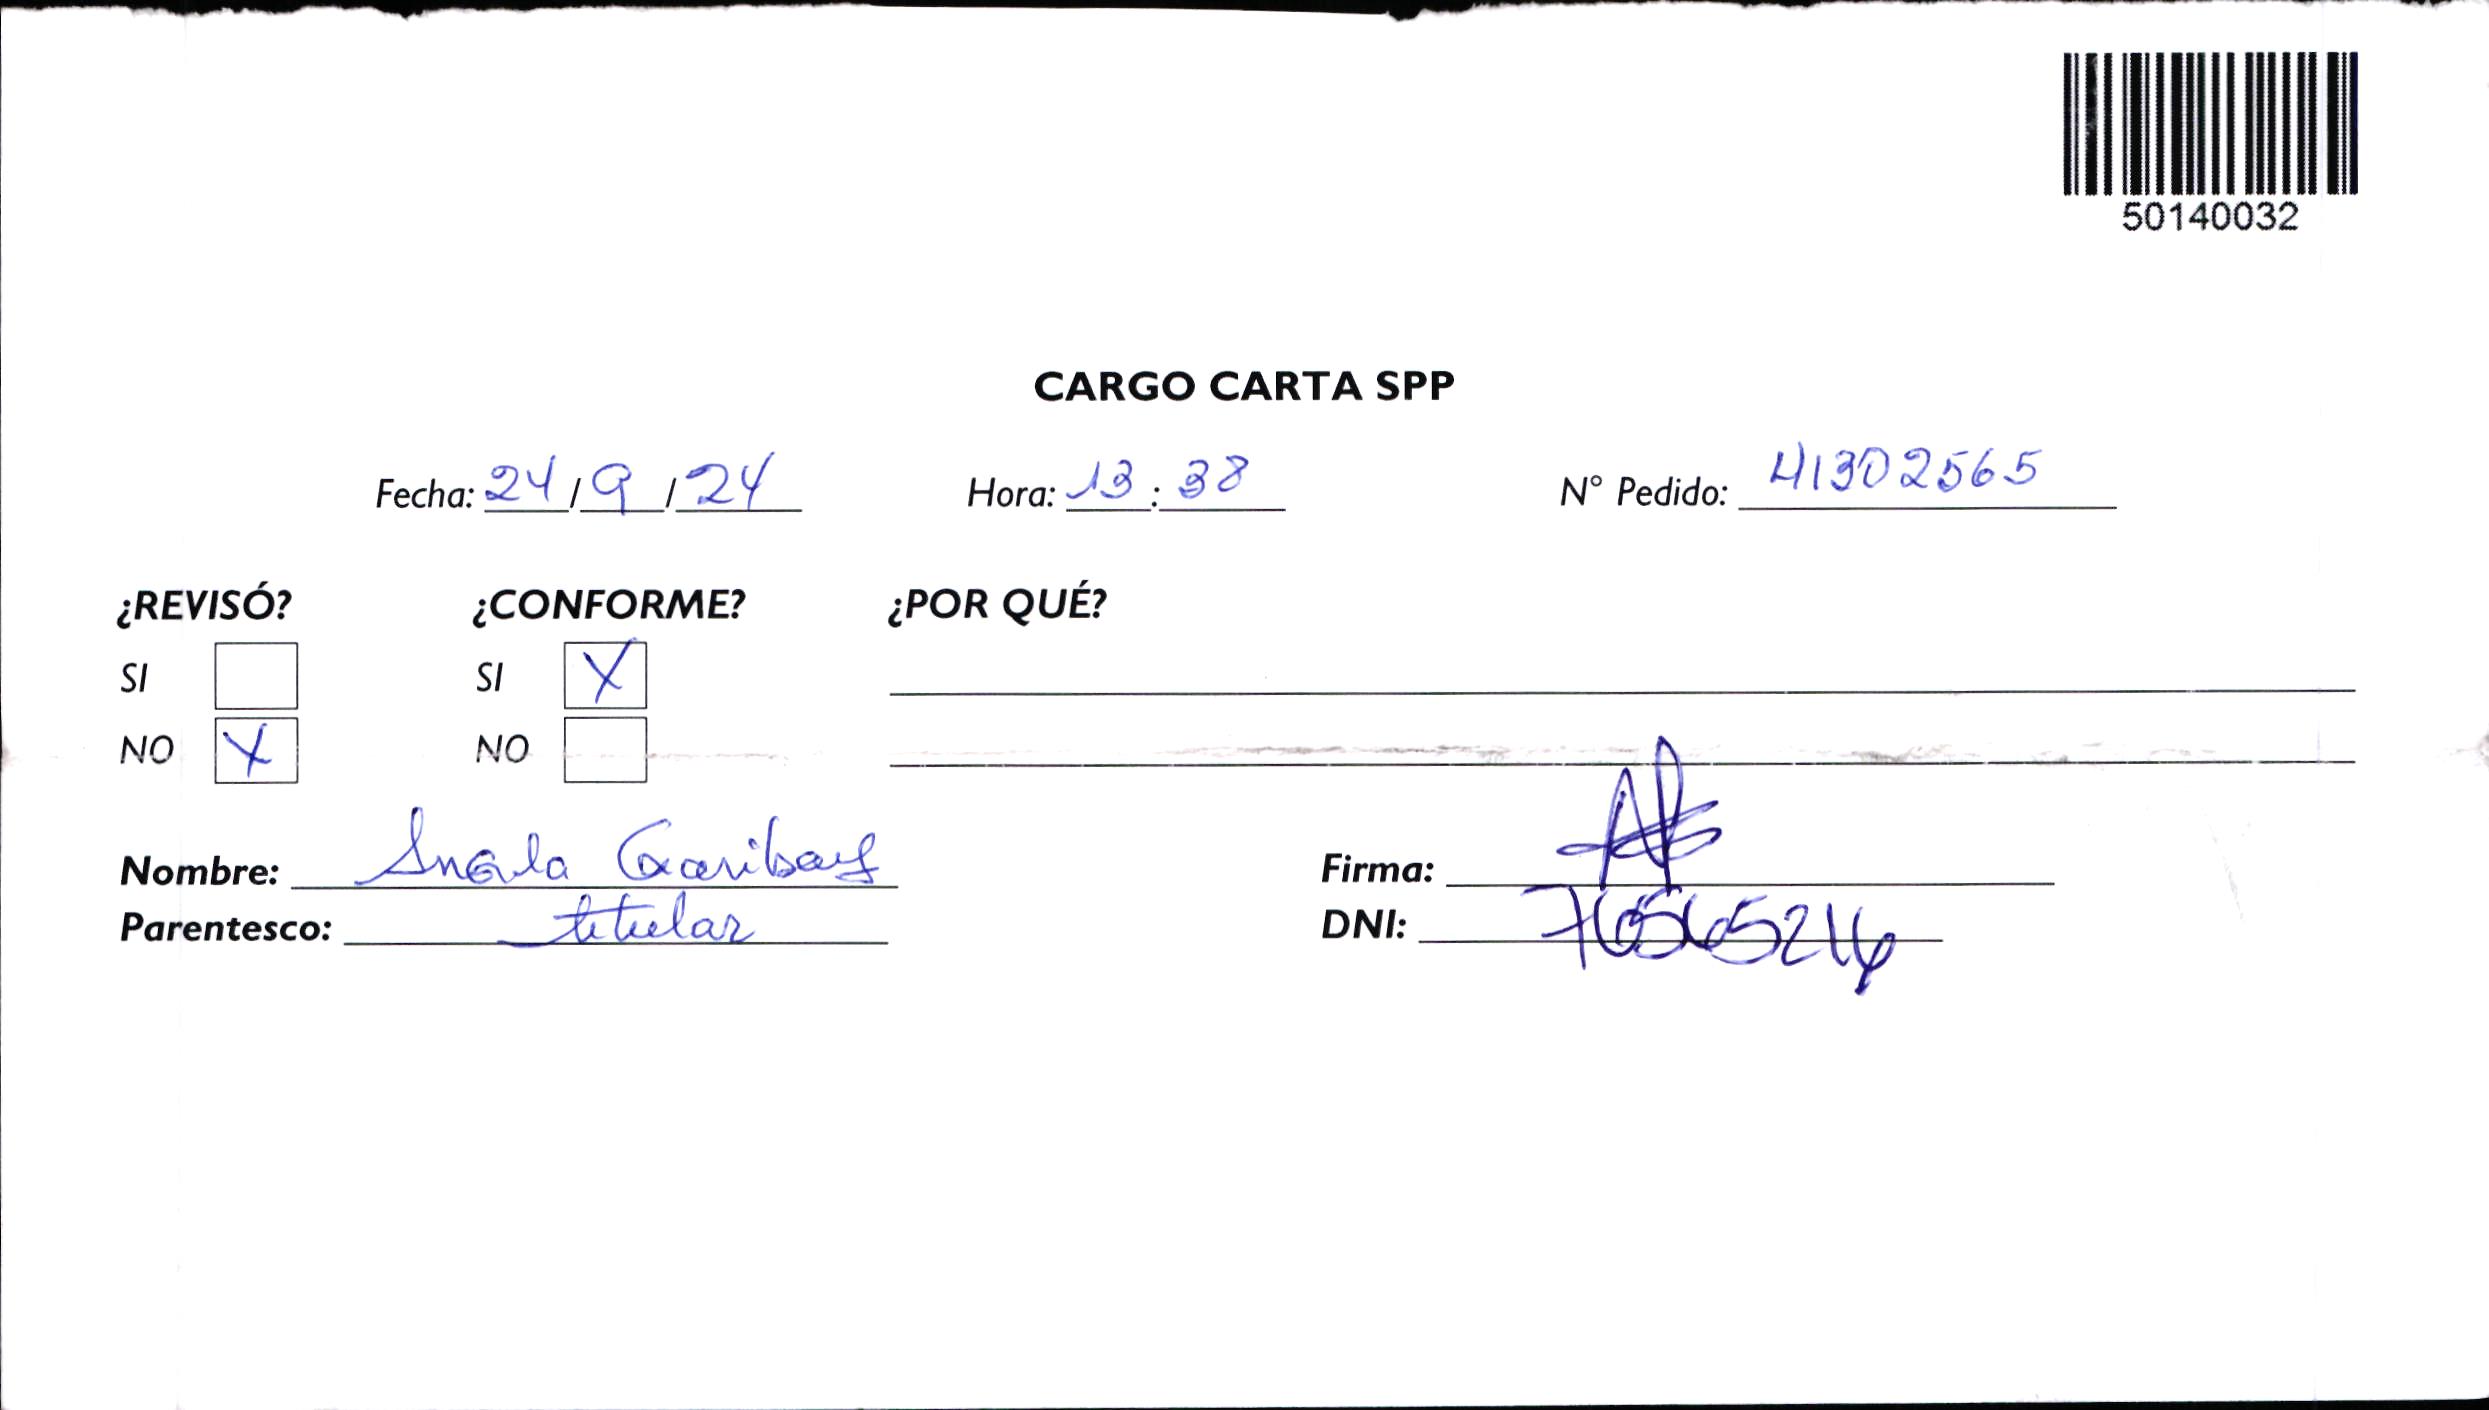 50140032
CARGO CARTA SPP
Fecha: 24/9/24 Hora: 13:38 N° Pedido: 41302565
¿REVISÓ? ¿CONFORME? ¿POR QUÉ?
SI SI X
NO X NO
Nombre: Garibay Firma:
Parentesco: titular DNI: